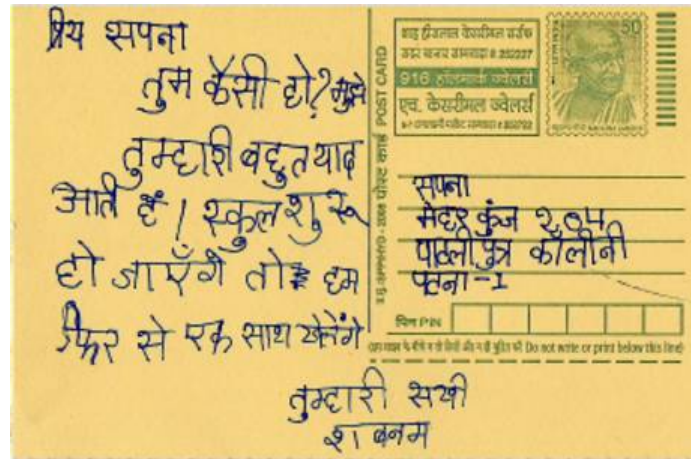 प्रिय सपना
तुम कैसी हो? मुझे
तुम्हारी बहुत याद
आती है। स्कुल शुरू
हो जाएँगे तो हम
फिर से एक साथ खेलेंगे
तुम्हारी सखी
शबनम
POST CARD
पोस्ट कार्ड
916 हॉलमार्क ज्वेलरी
एच. केसरीमल ज्वेलर्स
50
सपना
मेहर कुंज २०४
पाटलीपुत्र कॉलोनी
पटना-1
पिन PIN
(Do not write or print below this line)